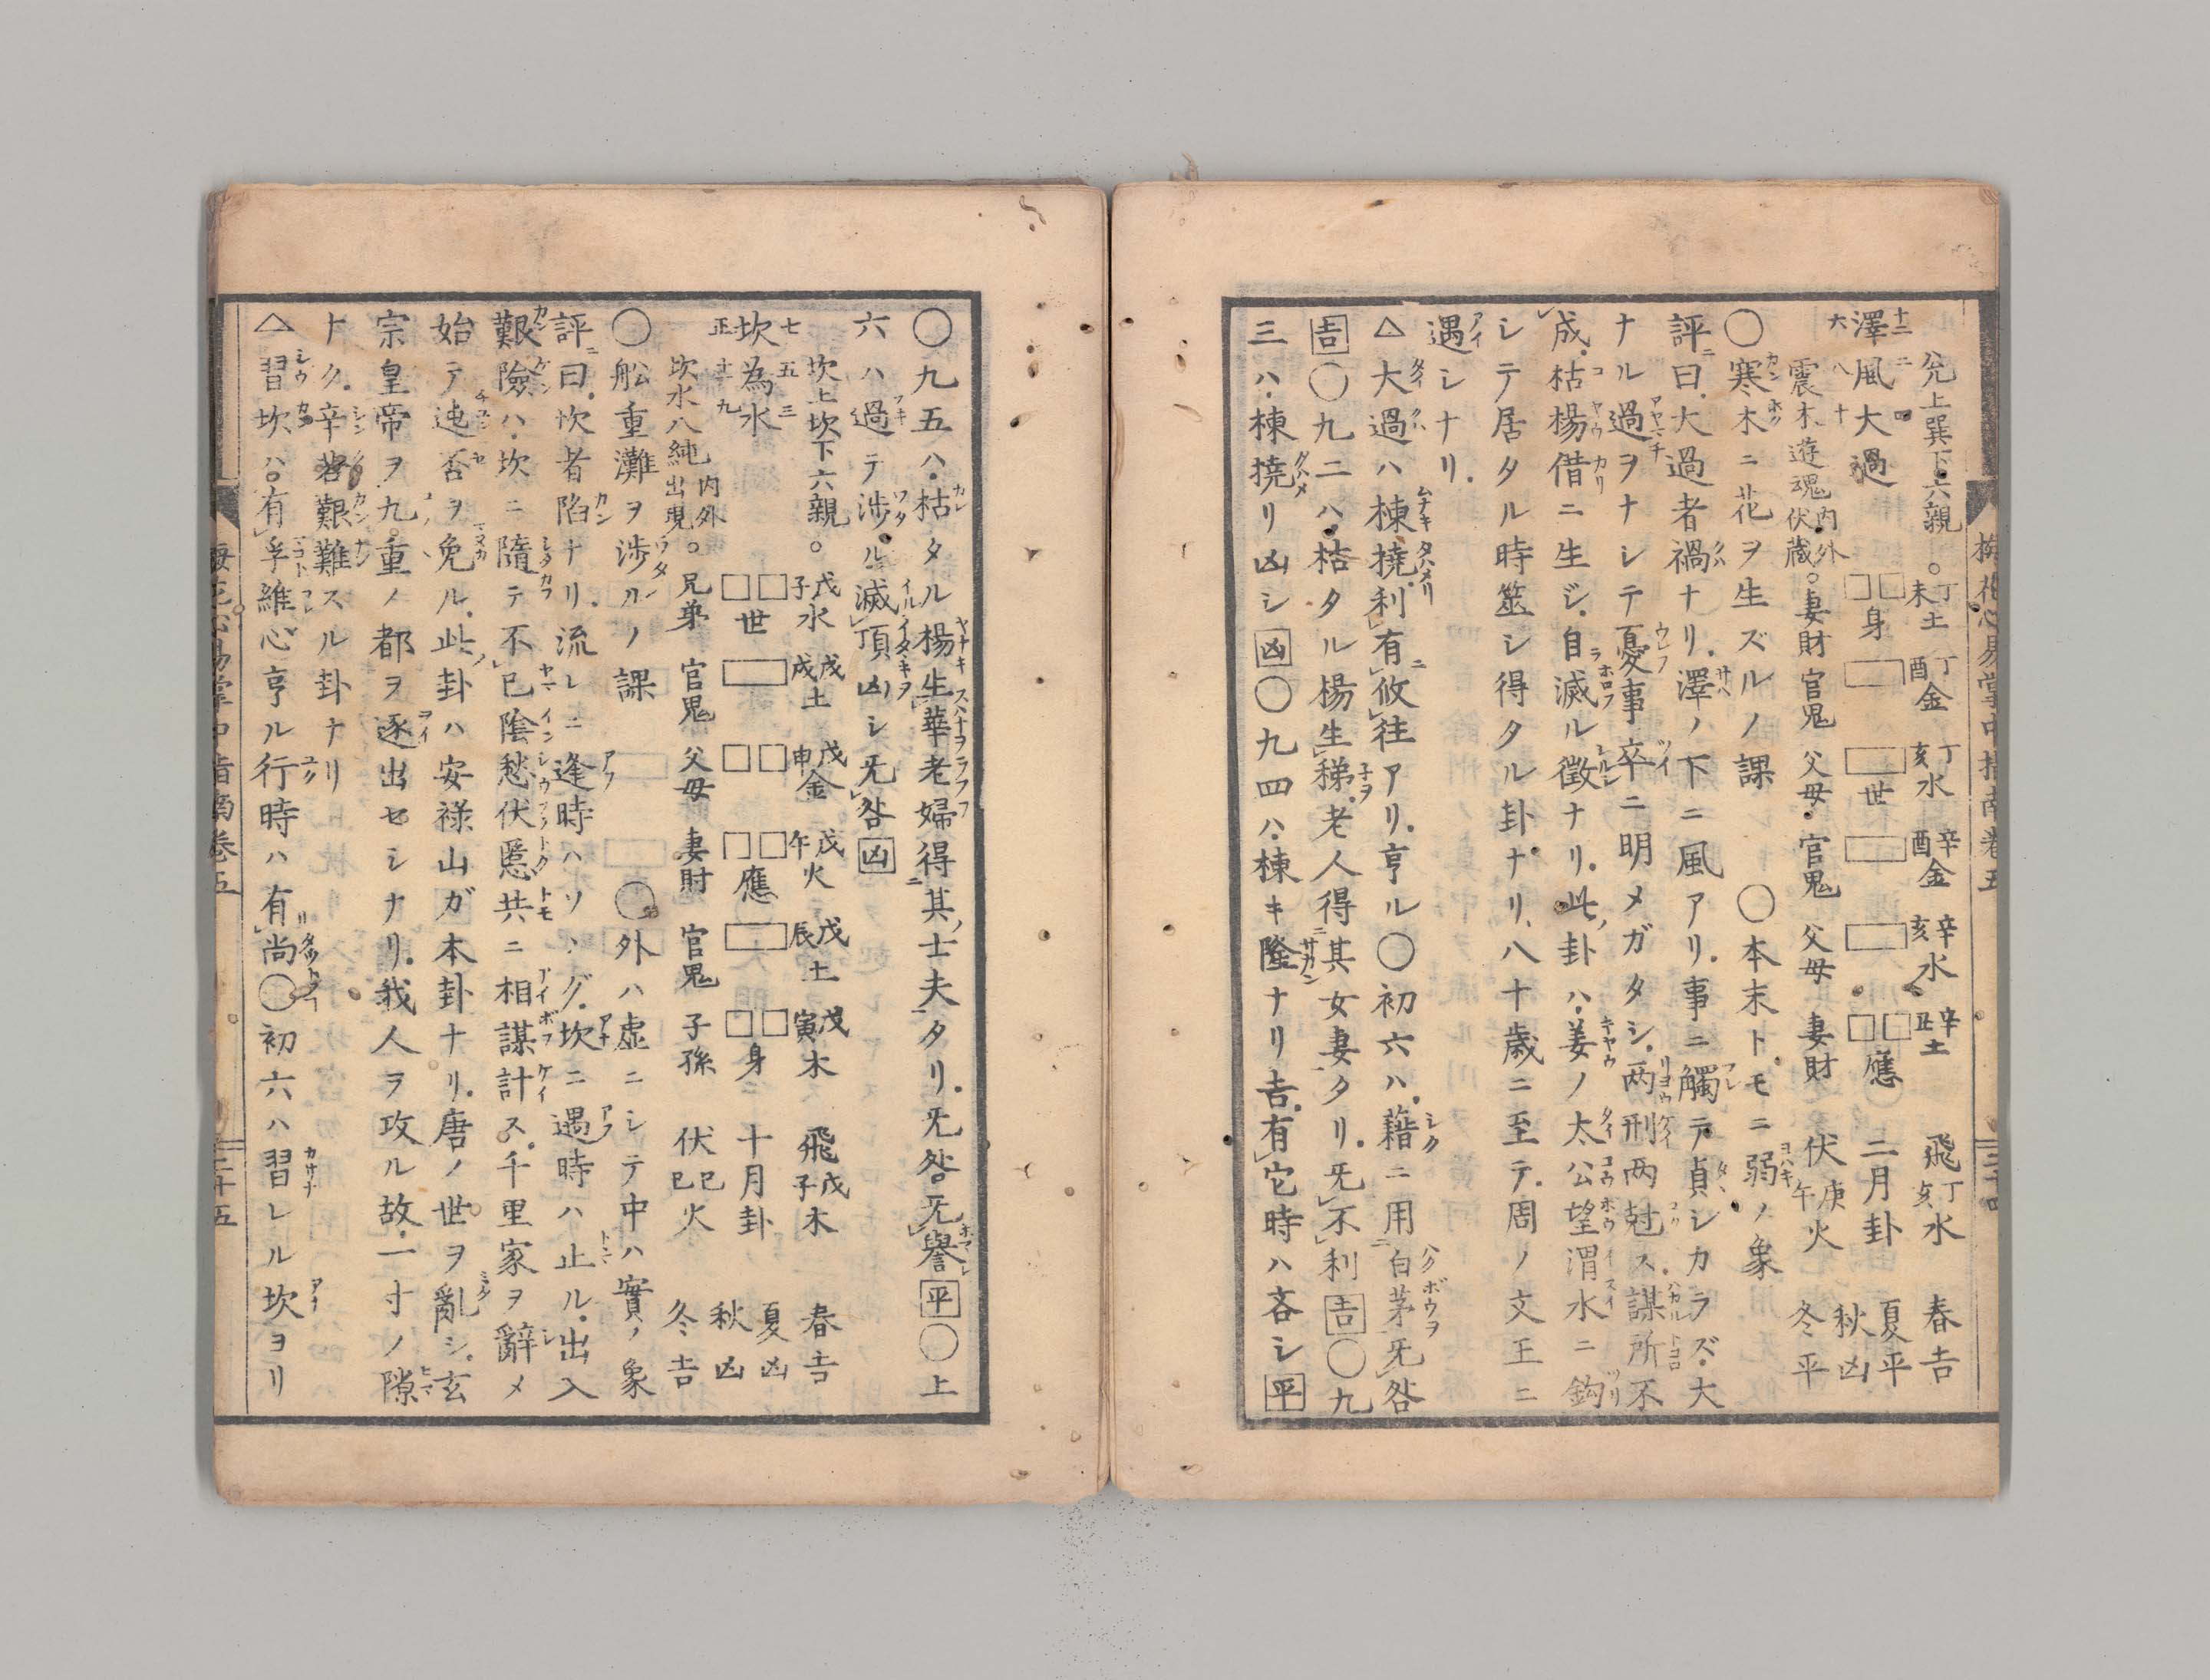 梅花心易掌中指南巻五
三十四
兌上巽下六親。
丁未土 丁酉金 丁亥水 辛酉金 辛亥水 辛丑土 飛丁亥水 春吉
十二 二 四
澤風大過
六 八 十
身 世 應 二月卦 夏平 秋凶
震木遊魂内外伏蔵。妻財 官鬼 父母 官鬼 父母 妻財 伏庚午火 冬平
〇寒木ニ花ヲ生ズルノ課 〇本末トモニ弱ノ象
評曰大過者禍ナリ澤ノ下ニ風アリ事ニ觸テ貞シカラズ大
ナル過ヲナシテ憂事卒ニ明メガタシ两刑两尅ス謀所不
成枯楊借ニ生ジ自滅ル徴ナリ此卦ハ姜ノ太公望渭水ニ鈎
シテ居タル時筮シ得タル卦ナリ八十歳ニ至テ周ノ文王ニ
遇シナリ
△大過ハ棟撓利有攸往アリ亨ル〇初六ハ藉ニ用白茅无咎
吉〇九二ハ枯タル楊生稊老人得其女妻タリ无不利吉〇九
三ハ棟撓リ凶シ凶〇九四ハ棟キ隆ナリ吉有它時ハ吝シ平
〇九五ハ枯タル楊生華老婦得其士夫タリ无咎无譽平〇上
六ハ過テ渉ル滅頂凶シ无咎凶
坎上坎下六親。
戊子水 戊戌土 戊申金 戊午火 戊辰土 戊寅木 飛戊子木 春吉
七 五 三
坎為水
正 十一 九
世 應 身 十月卦 夏凶 秋凶
坎水八純内外出現。兄弟 官鬼 父母 妻財 官鬼 子孫 伏己巳火 冬吉
〇舩重灘ヲ渉ルノ課 〇外ハ虚ニシテ中ハ實ノ象
評曰坎者陷ナリ流レニ逢時ハソヽグ坎ニ遇時ハ止ル出入
艱險ハ坎ニ隨テ不已陰愁伏慝共ニ相謀計ス千里家ヲ辭メ
始テ迍否ヲ免ル此卦ハ安禄山ガ本卦ナリ唐ノ世ヲ亂シ玄
宗皇帝ヲ九重ノ都ヲ逐出セシナリ我人ヲ攻ル故一寸ノ隙
トク辛苦艱難スル卦ナリ
△習坎ハ有孚維心亨ル行時ハ有尚〇初六ハ習レル坎ヨリ
梅花心易掌中指南巻五
三十五